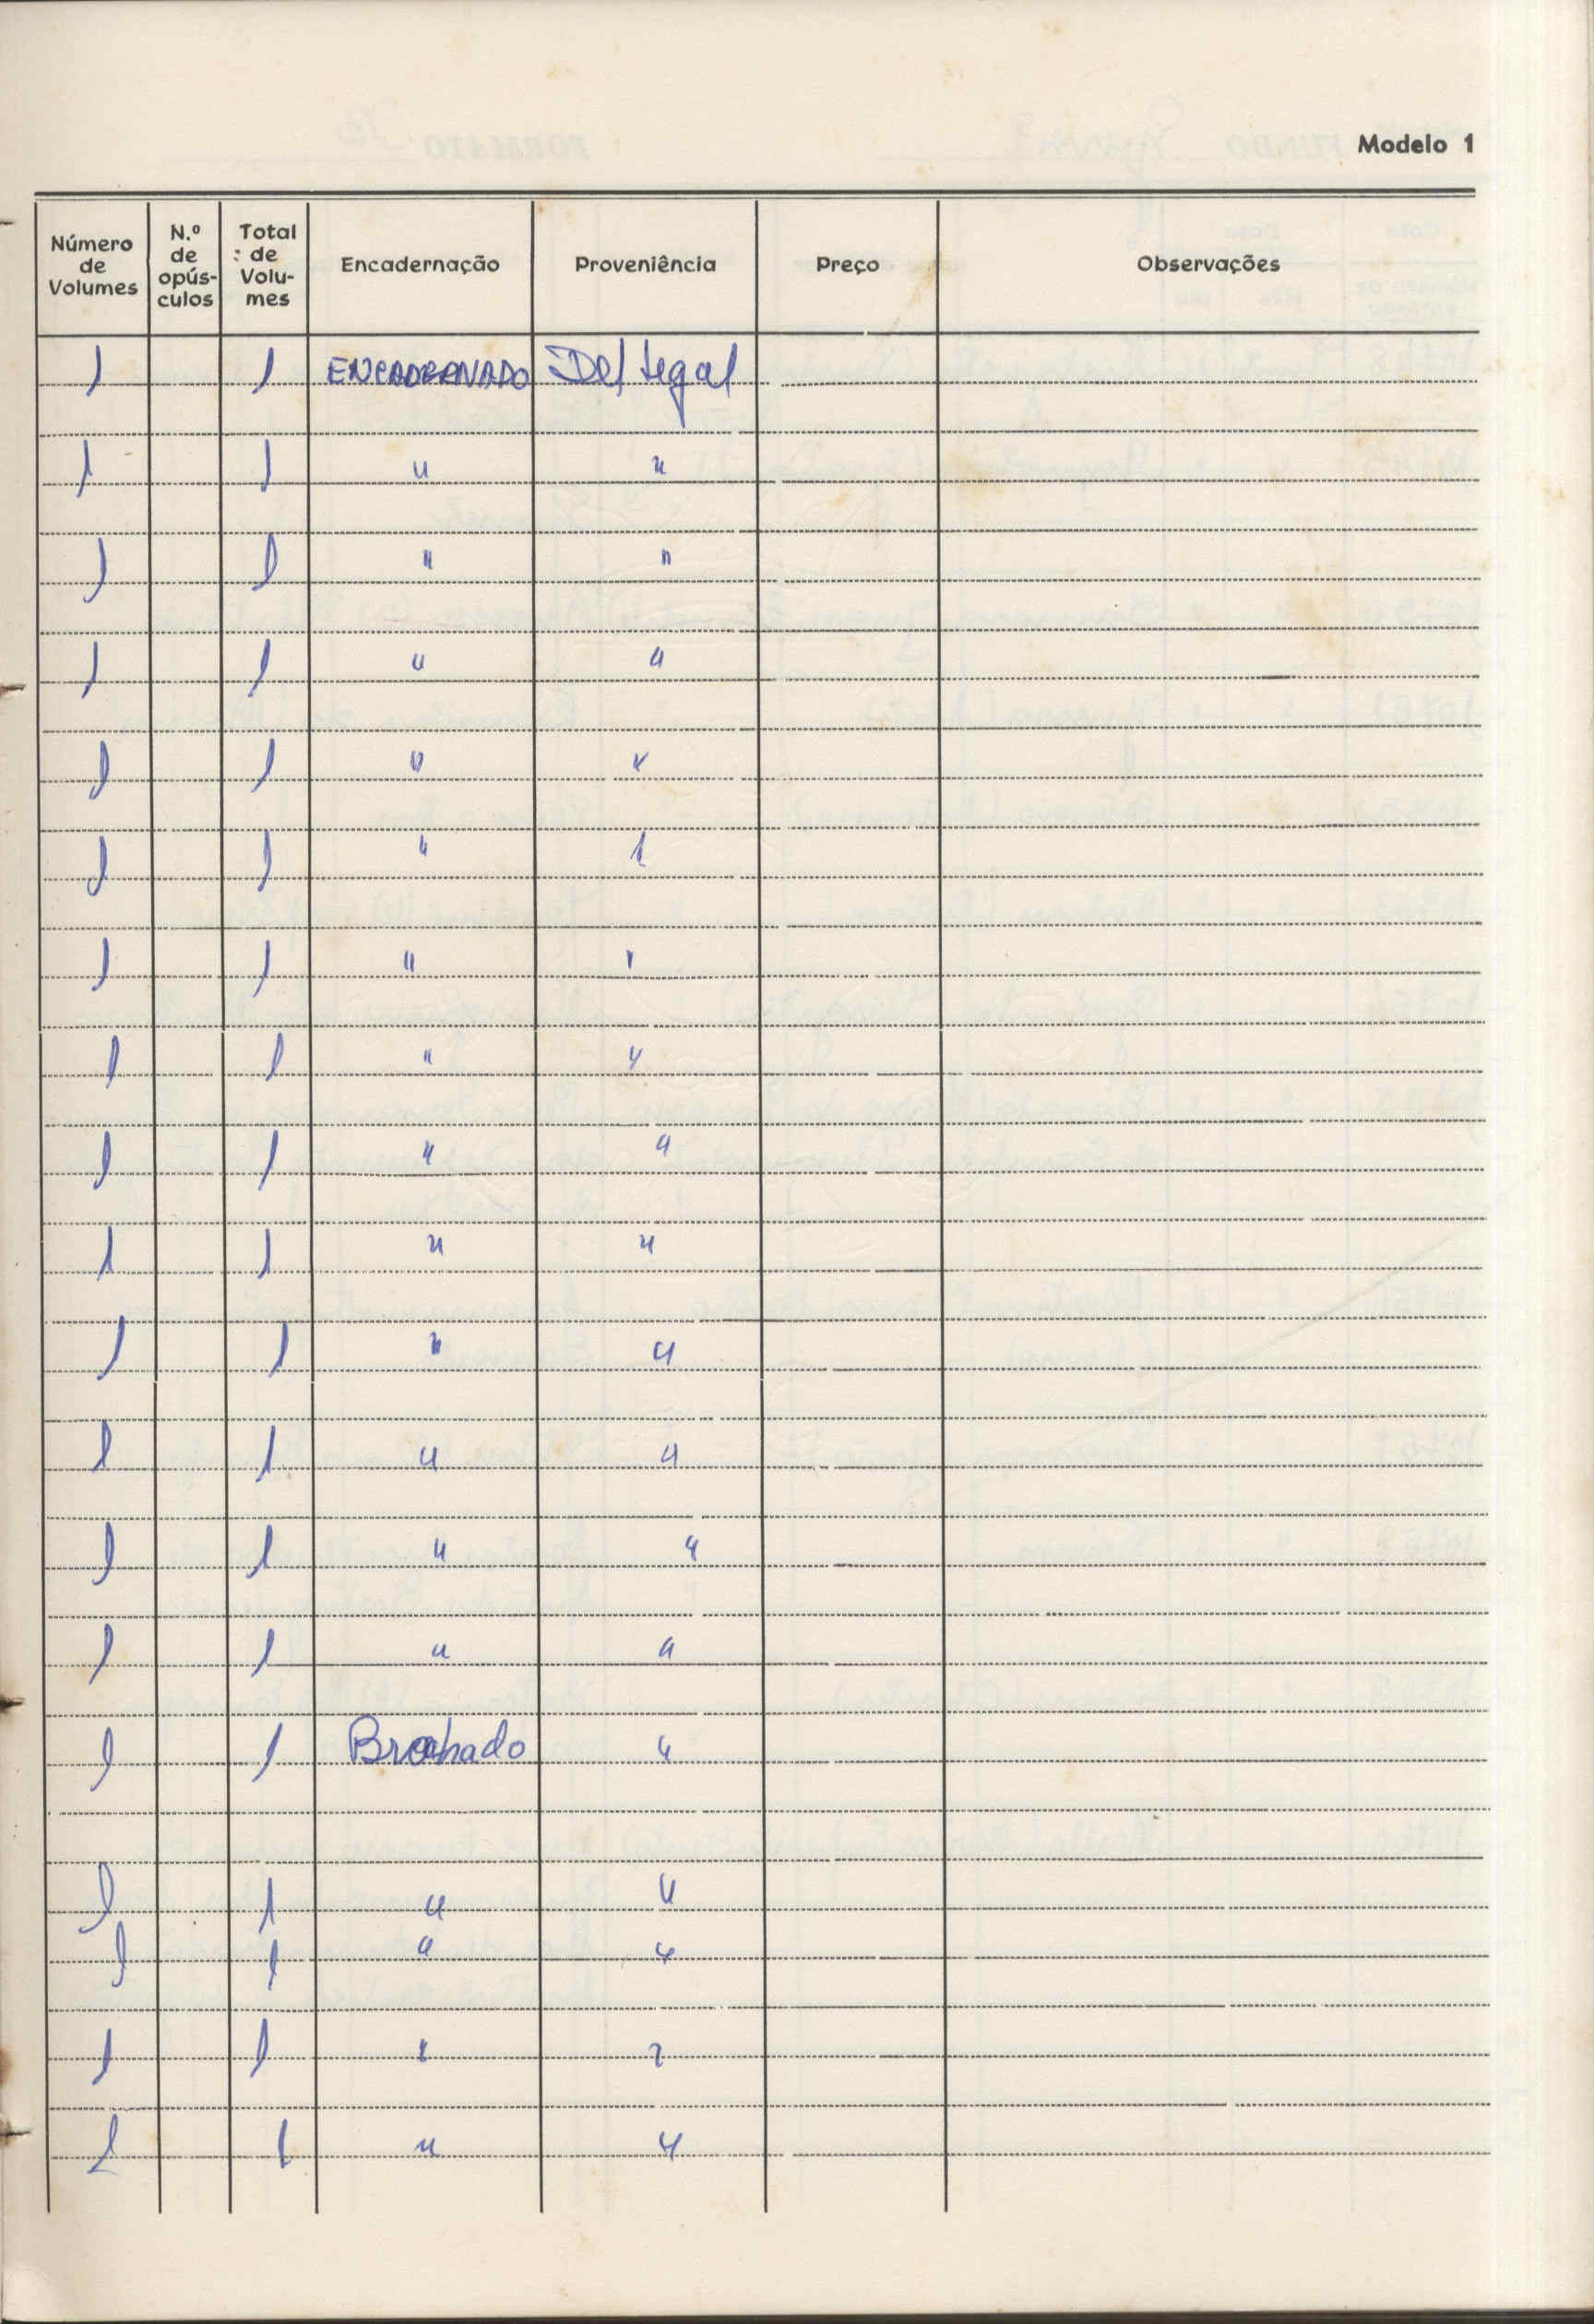 Modelo 1
Número de Volumes | N.º de opúsculos | Total de Volumes | Encadernação | Proveniência | Preço | Observações
1 | | 1 | ENCADERNADO | Del Legal
1 | | 1 | " | "
1 | | 1 | " | "
1 | | 1 | " | "
1 | | 1 | " | "
1 | | 1 | " | "
1 | | 1 | " | "
1 | | 1 | " | "
1 | | 1 | " | "
1 | | 1 | " | "
1 | | 1 | " | "
1 | | 1 | " | "
1 | | 1 | " | "
1 | | 1 | " | "
1 | | 1 | Brochado | "
1 | | 1 | " | "
1 | | 1 | " | "
1 | | 1 | " | "
1 | | 1 | " | "